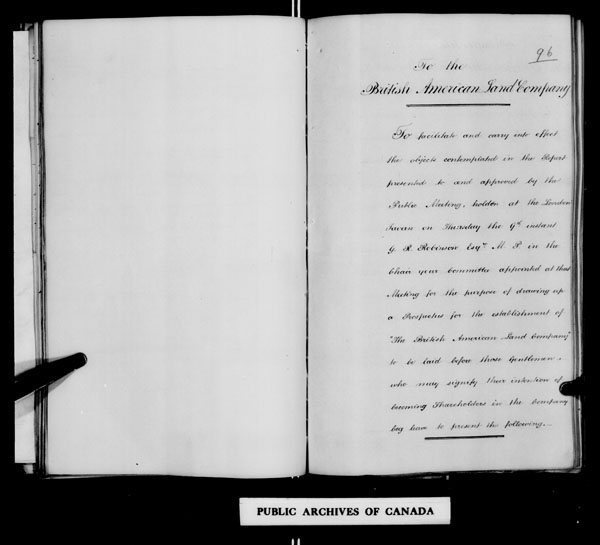 96
To the
British American Land Company
To facilitate and carry into effect
the objects contemplated in the Report
presented to and approved by the
Public Meeting, holden at the London
Tavern on Thursday the 9th instant
G. R. Robinson Esqre M. P. in the
Chair your Committee appointed at that
Meeting for the purpose of drawing up
a Prospectus for the establishment of
"The British American Land Company"
to be laid before those Gentlemen
who may signify their intention of
becoming Shareholders in the Company
beg leave to present the following.
PUBLIC ARCHIVES OF CANADA